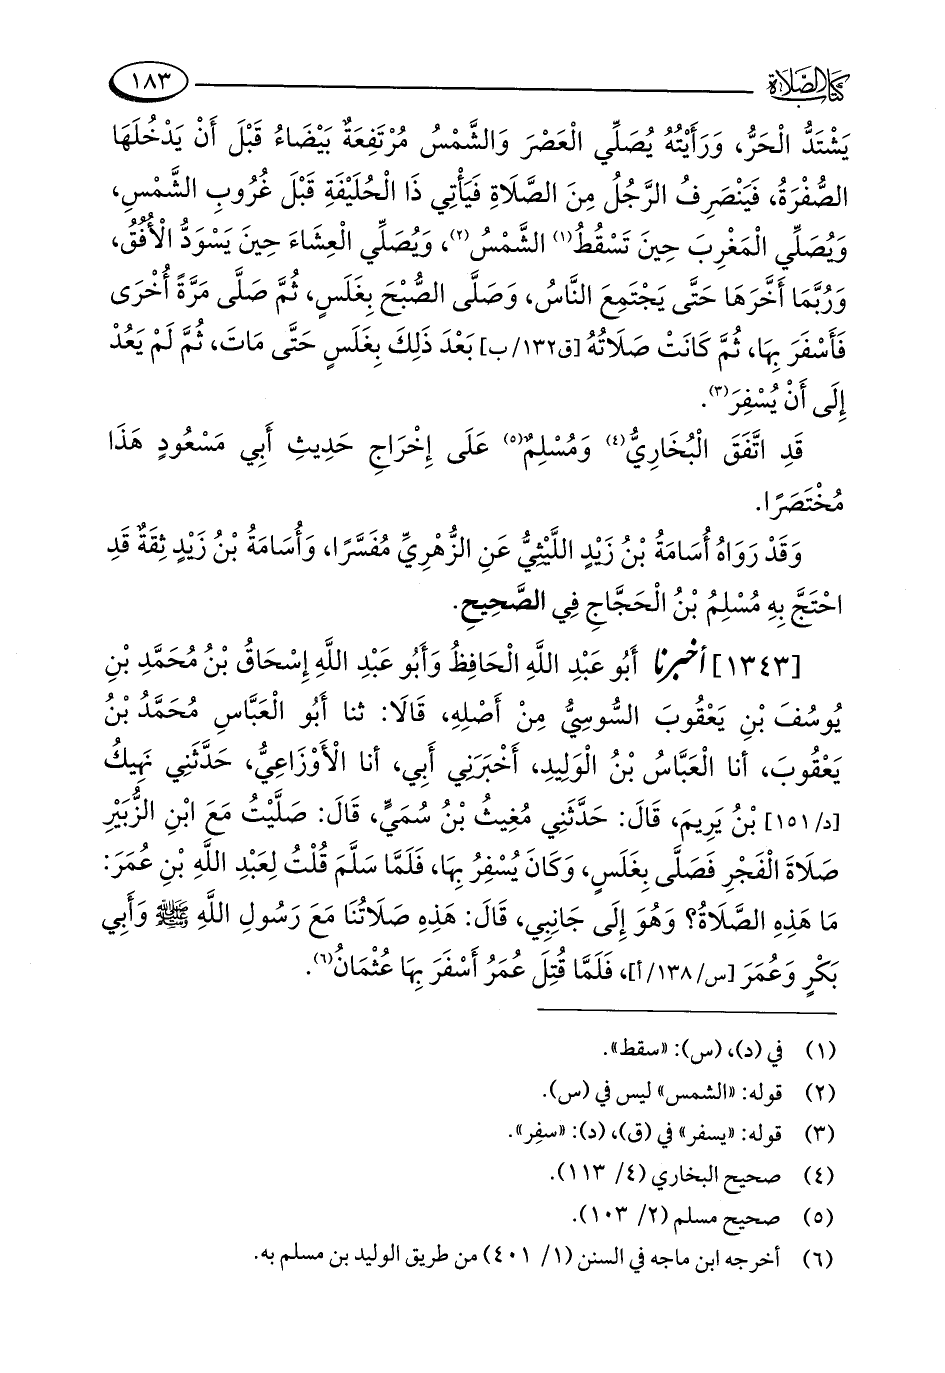 كتاب الصلاة ١٨٣
يَشْتَدُّ الْحَرُّ، وَرَأَيْتُهُ يُصَلِّي الْعَصْرَ وَالشَّمْسُ مُرْتَفِعَةٌ بَيْضَاءُ قَبْلَ أَنْ يَدْخُلَهَا
الصُّفْرَةُ، فَيَنْصَرِفُ الرَّجُلُ مِنَ الصَّلَاةِ فَيَأْتِي ذَا الْحُلَيْفَةِ قَبْلَ غُرُوبِ الشَّمْسِ،
وَيُصَلِّي الْمَغْرِبَ حِينَ تَسْقُطُ(١) الشَّمْسُ(٢)، وَيُصَلِّي الْعِشَاءَ حِينَ يَسْوَدُّ الْأُفُقُ،
وَرُبَّمَا أَخَّرَهَا حَتَّى يَجْتَمِعَ النَّاسُ، وَصَلَّى الصُّبْحَ بِغَلَسٍ، ثُمَّ صَلَّى مَرَّةً أُخْرَى
فَأَسْفَرَ بِهَا، ثُمَّ كَانَتْ صَلَاتُهُ [ق١٣٢/ب] بَعْدَ ذَلِكَ بِغَلَسٍ حَتَّى مَاتَ، ثُمَّ لَمْ يَعُدْ
إِلَى أَنْ يُسْفِرَ(٣).
قَدِ اتَّفَقَ الْبُخَارِيُّ(٤) وَمُسْلِمٌ(٥) عَلَى إِخْرَاجِ حَدِيثِ أَبِي مَسْعُودٍ هَذَا
مُخْتَصَرًا.
وَقَدْ رَوَاهُ أُسَامَةُ بْنُ زَيْدٍ اللَّيْثِيُّ عَنِ الزُّهْرِيِّ مُفَسَّرًا، وَأُسَامَةُ بْنُ زَيْدٍ ثِقَةٌ قَدِ
احْتَجَّ بِهِ مُسْلِمُ بْنُ الْحَجَّاجِ فِي الصَّحِيحِ.
[١٣٤٣] أخبرنا أَبُو عَبْدِ اللَّهِ الْحَافِظُ وَأَبُو عَبْدِ اللَّهِ إِسْحَاقُ بْنُ مُحَمَّدِ بْنِ
يُوسُفَ بْنِ يَعْقُوبَ السُّوسِيُّ مِنْ أَصْلِهِ، قَالَا: ثنا أَبُو الْعَبَّاسِ مُحَمَّدُ بْنُ
يَعْقُوبَ، أنا الْعَبَّاسُ بْنُ الْوَلِيدِ، أَخْبَرَنِي أَبِي، أنا الْأَوْزَاعِيُّ، حَدَّثَنِي نَهِيكُ
[د/١٥١] بْنُ يَرِيمَ، قَالَ: حَدَّثَنِي مُغِيثُ بْنُ سُمَيٍّ، قَالَ: صَلَّيْتُ مَعَ ابْنِ الزُّبَيْرِ
صَلَاةَ الْفَجْرِ فَصَلَّى بِغَلَسٍ، وَكَانَ يُسْفِرُ بِهَا، فَلَمَّا سَلَّمَ قُلْتُ لِعَبْدِ اللَّهِ بْنِ عُمَرَ:
مَا هَذِهِ الصَّلَاةُ؟ وَهُوَ إِلَى جَانِبِي، قَالَ: هَذِهِ صَلَاتُنَا مَعَ رَسُولِ اللَّهِ ﷺ وَأَبِي
بَكْرٍ وَعُمَرَ [س/١٣٨/أ]، فَلَمَّا قُتِلَ عُمَرُ أَسْفَرَ بِهَا عُثْمَانُ(٦).
(١) في (د)، (س): «سقط».
(٢) قوله: «الشمس» ليس في (س).
(٣) قوله: «يسفر» في (ق)، (د): «سفِر».
(٤) صحيح البخاري (٤/ ١١٣).
(٥) صحيح مسلم (٢/ ١٠٣).
(٦) أخرجه ابن ماجه في السنن (١/ ٤٠١) من طريق الوليد بن مسلم به.